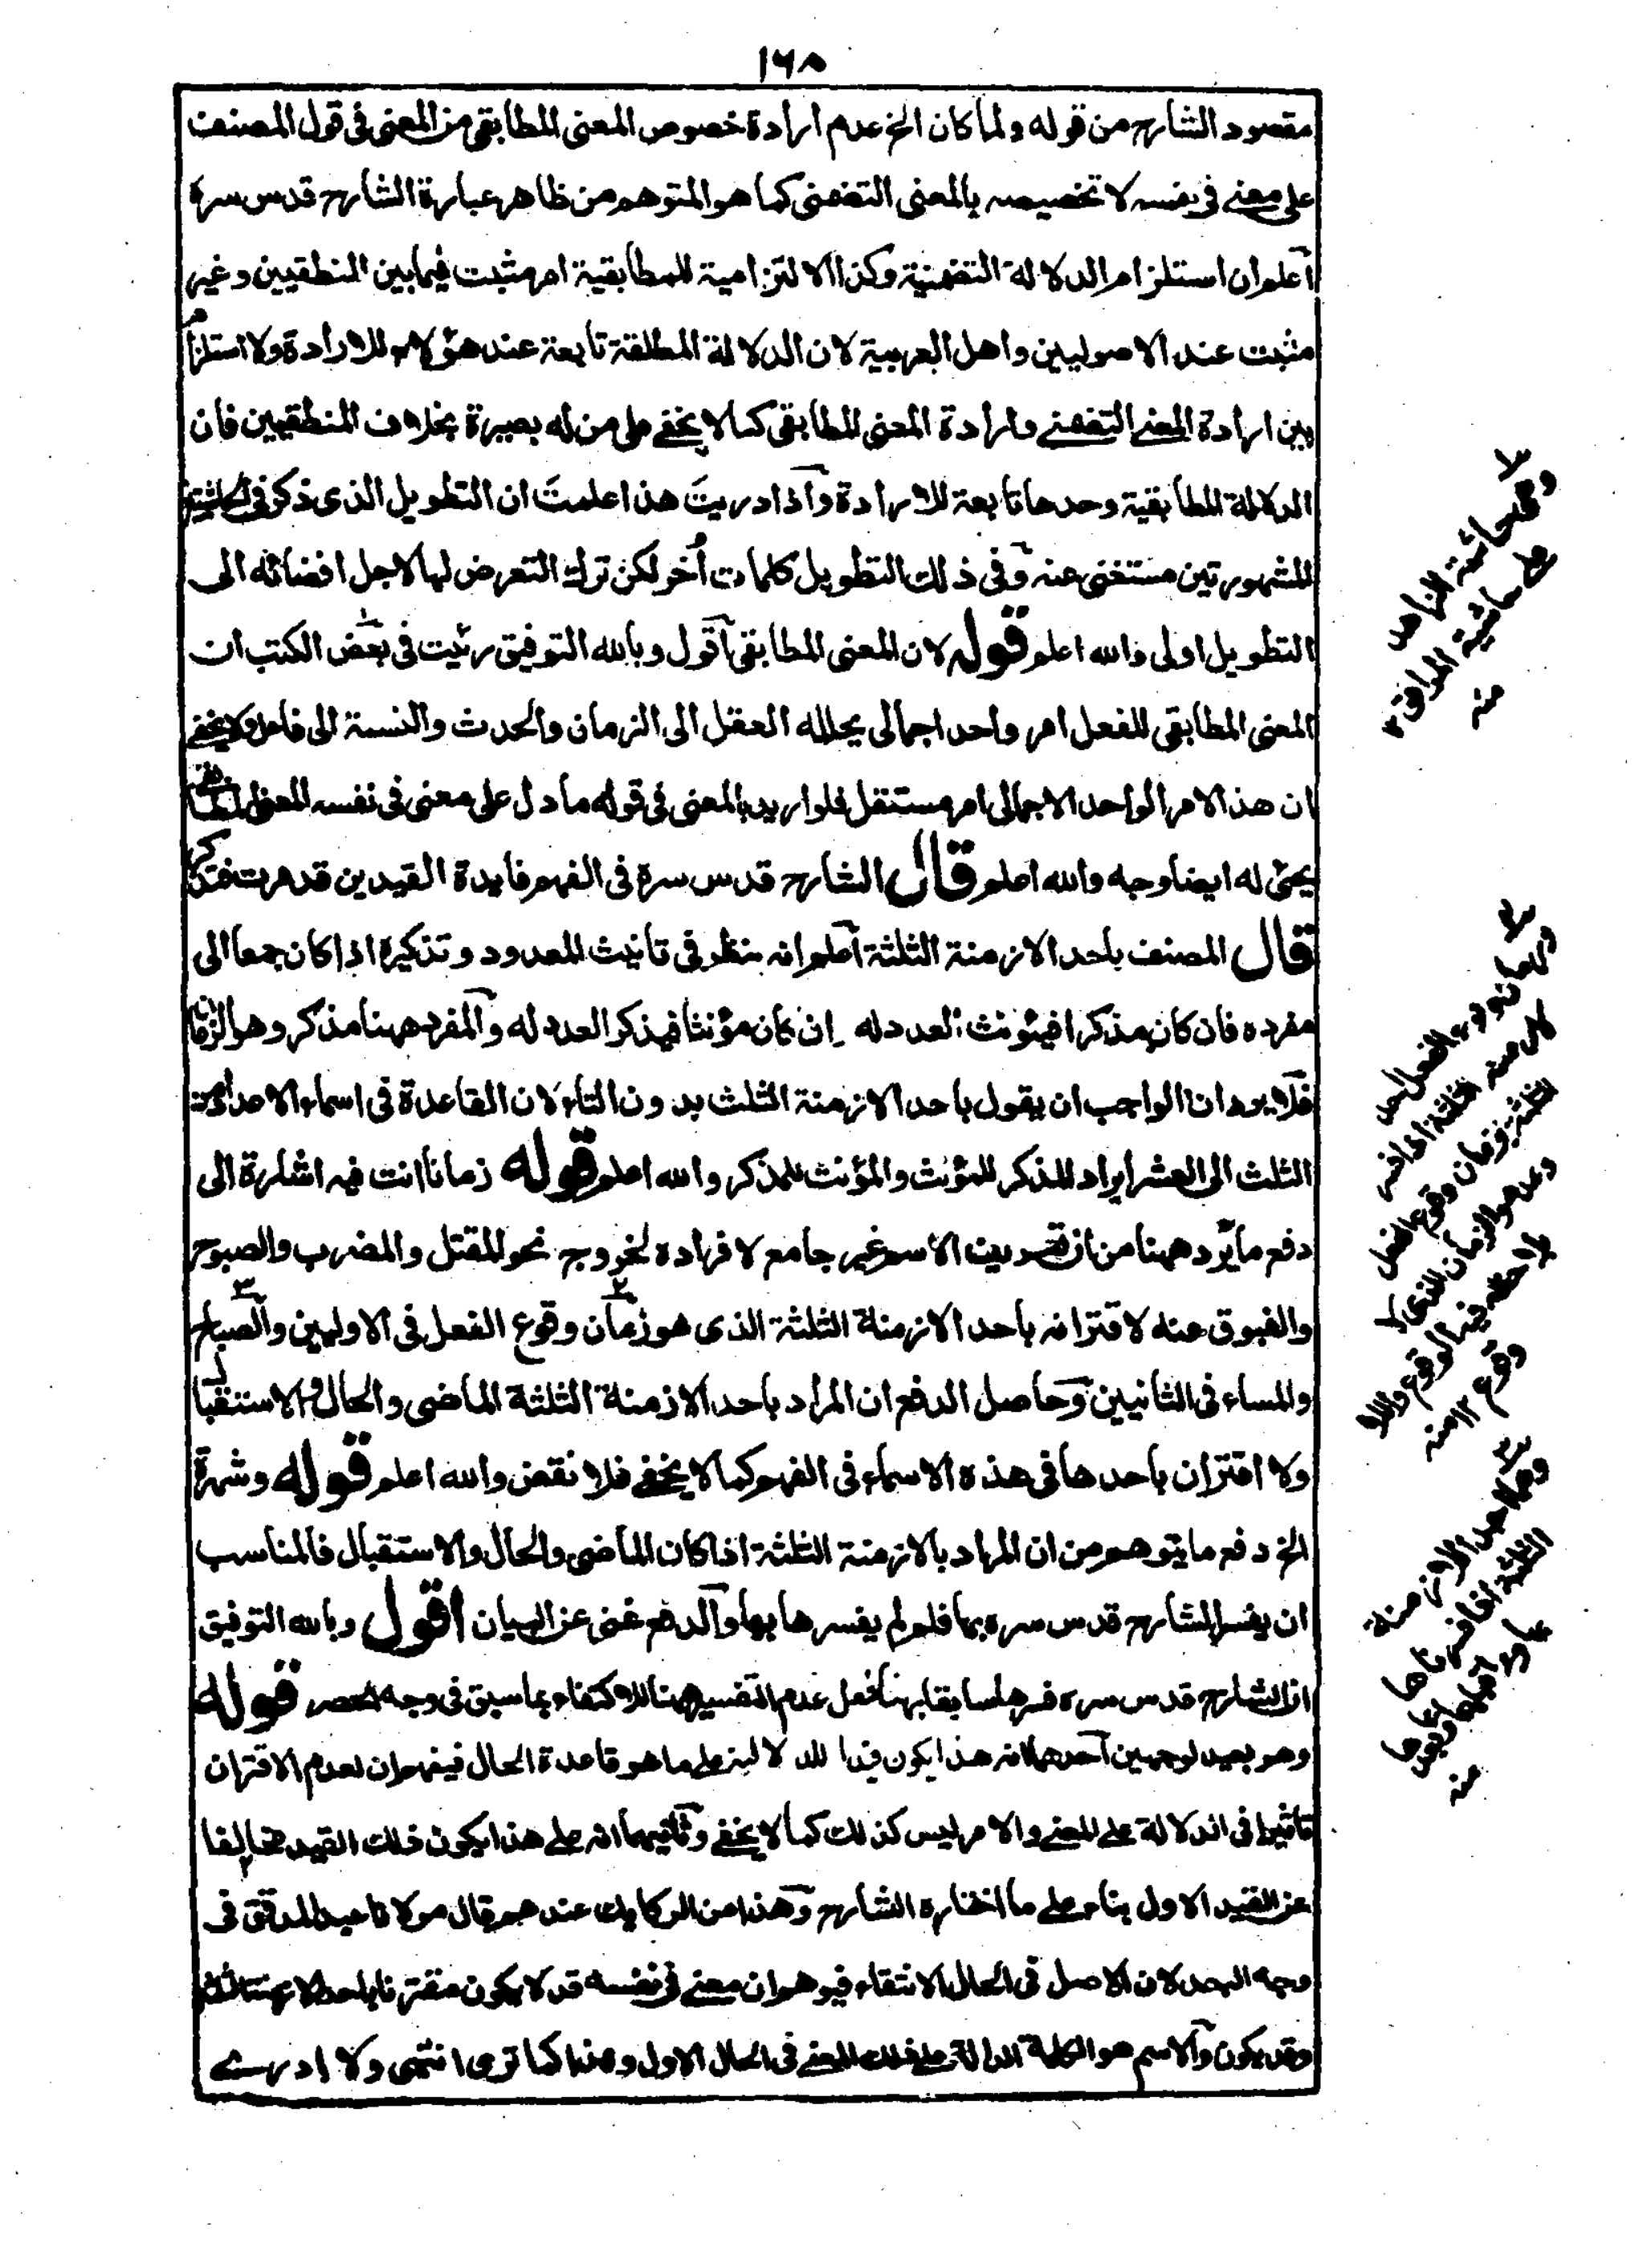 ١٦٨
مقصود الشارح من قوله ولما كان الخ عدم ارادة خصوص المعنى المطابقى من المعنى فى قول المصنف
على معنے فى نفسه لا تخصيصه بالمعنى التضمنى كما هو المتوهم من ظاهر عبارة الشارح قدس سره
اعلم ان استلزام الدلالة التضمنية وكذا الالتزامية للمطابقية امر مثبت فيما بين المنطقيين وغير
مثبت عند الاصوليين واهل العربية لان الدلالة المطلقة تابعة عند هؤلاء للارادة ولا استلزام
بين ارادة المعنے التضمنے وارادة المعنى المطابقى كما لا يخفے على من له بصيرة بخلاف المنطقيين فان
الدلالة المطابقية وحدها تابعة للارادة واذا دريتَ هذا علمتَ ان التطويل الذى ذكر فى الحاشيتين
المشهورتين مستغنى عنه وفى ذلك التطويل كلمات اُخر لكن ترك التعرض لها لاجل افضائه الى
التطويل اولى والله اعلم قوله لان المعنى المطابقى اقول وبالله التوفيق رئيت فى بعض الكتب ان
المعنى المطابقى للفعل امر واحد اجمالى يحلله العقل الى الزمان والحدث والنسبة الى فاعل ولا يخفے
ان هذا الامر الواحد الاجمالى امر مستقل فلو اريد بالمعنى فى قوله ما دل على معنى فى نفسه المعنى المطابقى
يجئ له ايضا وجه والله اعلم قال الشارح قدس سره فى الفهم فايدة القيدين قد مرت فتذكر
قال المصنف باحد الازمنة الثلثة اعلم انه ينظر فى تانيث المعدود وتذكيره اذا كان جمعا الى
مفرده فان كان مذكرا فيئونث العدد له ان كان مؤنثا فيذكر العدد له والمفرد ههنا مذكر وهو الزمان
فلا يرد ان الواجب ان يقول باحد الازمنة الثلث بدون التاء لان القاعدة فى اسماء الاعداد من
الثلث الى العشر ايراد المذكر للمؤنث والمؤنث للمذكر والله اعلم قوله زمانا انت فيه اشارة الى
دفع ما يرد ههنا من ان تعريف الاسم غير جامع لافراده لخروج نحو المقتل والمضرب والصبوح
والغبوق عنه لاقترانه باحد الازمنة الثلثة الذى هو زمان وقوع الفعل فى الاوليين والصباح
والمساء فى الثانيين وحاصل الدفع ان المراد باحد الازمنة الثلثة الماضى والحال والاستقبال
ولا اقتران باحدها فى هذه الاسماء فى الفهم كما لا يخفے فلا نقض والله اعلم قوله وشهرة
الخ دفع ما يتوهم من ان المراد بالازمنة الثلثة اذا كان الماضى والحال والاستقبال فالمناسب
ان يفسر الشارح قدس سره بها فلم لم يفسرها بها والدفع غنى عن البيان اقول وبالله التوفيق
ان الشارح قدس سره فسرها سابقا بها فعل عدم التفسير ههنا للاكتفاء بما سبق فى وجه الحصر قوله
وهو بعيد لوجهين احدهما انه هذا يكون قيدا للدلالة على ما هو قاعدة الحال فيفهم ان لعدم الاقتران
تاثيرا فى الدلالة على المعنے والامر ليس كذلك كما لا يخفے وثانيهما انه على هذا يكون ذلك القيد مخالفا
عن القيد الاول بناء على ما اختاره الشارح وهذا من الركايك عندهم قال مولانا عبد المدقق فى
وجه البعد لان الاصل فى الحال الانتقاء فيوهم ان معنے فى نفسه قد لا يكون مقترنا باحد الازمنة الثلثة
وقد يكون والاسم هو الكلمة الدالة على ذلك المعنے فى الحال الاول وهذا كما ترى انتهى ولا ادرے
على حاشية المدقق
منه
الثلثة زمان وقوع الفعل
وقوع ١٢ منه
وهو احد الازمنة
منه